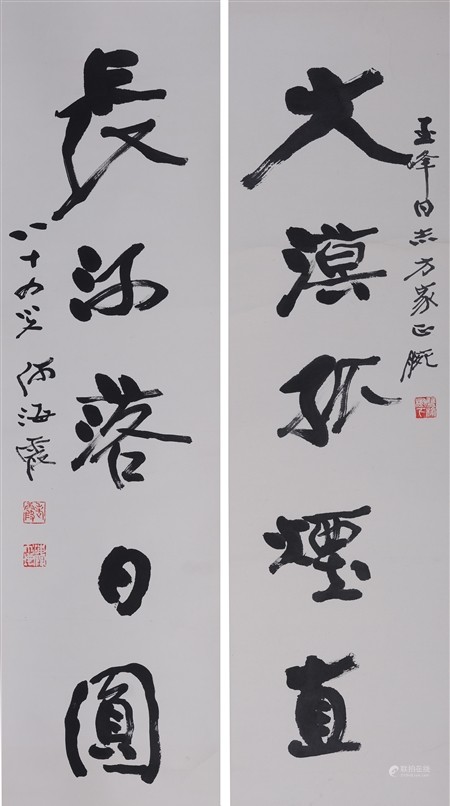 玉峰同志方家正腕
大漠孤煙直
長河落日圓
八十九叟 何海霞